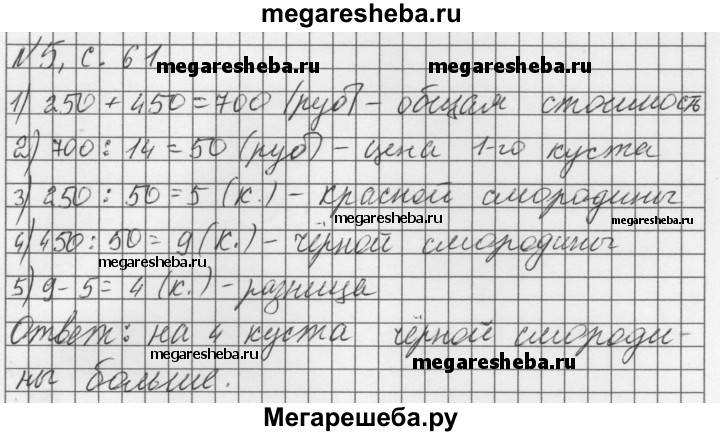 megaresheba.ru
№5, с. 61
megaresheba.ru megaresheba.ru
1) 250 + 450 = 700 (руб) - общая стоимость
2) 700 : 14 = 50 (руб) - цена 1-го куста
3) 250 : 50 = 5 (к.) - красной смородины
megaresheba.ru megaresheba.ru
4) 450 : 50 = 9 (к.) - чёрной смородины
megaresheba.ru
5) 9 - 5 = 4 (к.) - разница
Ответ: на 4 куста чёрной смороди-
megaresheba.ru megaresheba.ru
ны больше.
Мегарешеба.ру